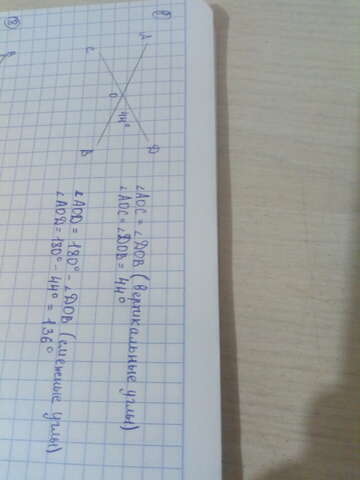 8
A
C
O
44°
D
B
∠AOC = ∠DOB (вертикальные углы)
∠AOC = ∠DOB = 44°
∠AOD = 180° - ∠DOB (смежные углы)
∠AOD = 180° - 44° = 136°